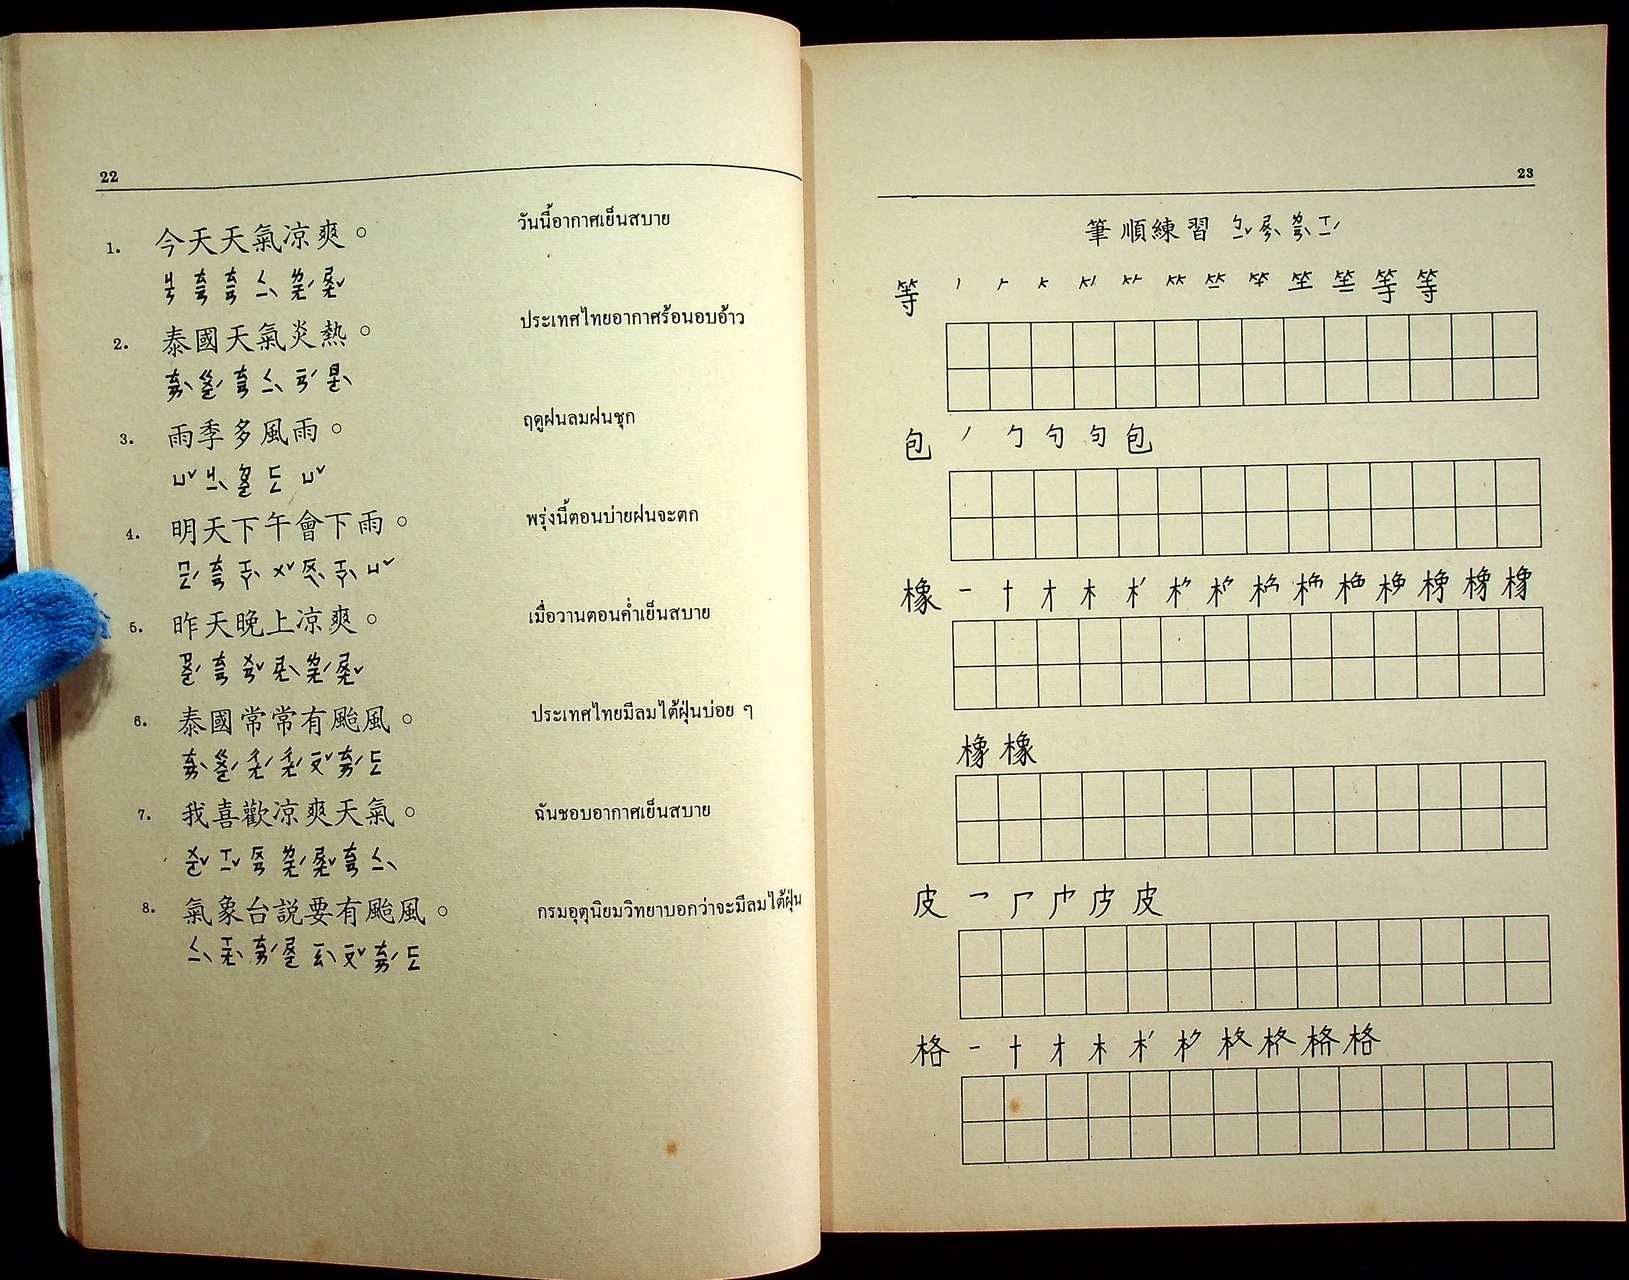 22
1. 今天天氣凉爽。 วันนี้อากาศเย็นสบาย
ㄐㄧㄣ ㄊㄧㄢ ㄊㄧㄢ ㄑㄧˋ ㄌㄧㄤˊ ㄕㄨㄤˇ
2. 泰國天氣炎熱。 ประเทศไทยอากาศร้อนอบอ้าว
ㄊㄞˋ ㄍㄨㄛˊ ㄊㄧㄢ ㄑㄧˋ ㄧㄢˊ ㄖㄜˋ
3. 雨季多風雨。 ฤดูฝนลมฝนชุก
ㄩˇ ㄐㄧˋ ㄉㄨㄛ ㄈㄥ ㄩˇ
4. 明天下午會下雨。 พรุ่งนี้ตอนบ่ายฝนจะตก
ㄇㄧㄥˊ ㄊㄧㄢ ㄒㄧㄚˋ ㄨˇ ㄏㄨㄟˋ ㄒㄧㄚˋ ㄩˇ
5. 昨天晚上凉爽。 เมื่อวานตอนค่ำเย็นสบาย
ㄗㄨㄛˊ ㄊㄧㄢ ㄨㄢˇ ㄕㄤˋ ㄌㄧㄤˊ ㄕㄨㄤˇ
6. 泰國常常有颱風。 ประเทศไทยมีลมไต้ฝุ่นบ่อย ๆ
ㄊㄞˋ ㄍㄨㄛˊ ㄔㄤˊ ㄔㄤˊ ㄧㄡˇ ㄊㄞˊ ㄈㄥ
7. 我喜歡凉爽天氣。 ฉันชอบอากาศเย็นสบาย
ㄨㄛˇ ㄒㄧˇ ㄏㄨㄢ ㄌㄧㄤˊ ㄕㄨㄤˇ ㄊㄧㄢ ㄑㄧˋ
8. 氣象台説要有颱風。 กรมอุตุนิยมวิทยาบอกว่าจะมีลมไต้ฝุ่น
ㄑㄧˋ ㄒㄧㄤˋ ㄊㄞˊ ㄕㄨㄛ ㄧㄠˋ ㄧㄡˇ ㄊㄞˊ ㄈㄥ
23
筆順練習 ㄅㄧˇ ㄕㄨㄣˋ ㄌㄧㄢˋ ㄒㄧˊ
等 等 等
包 丿 勹 勺 句 包
橡 一 十 才 木
橡 橡
皮 皮
格 一 十 才 木 格 格